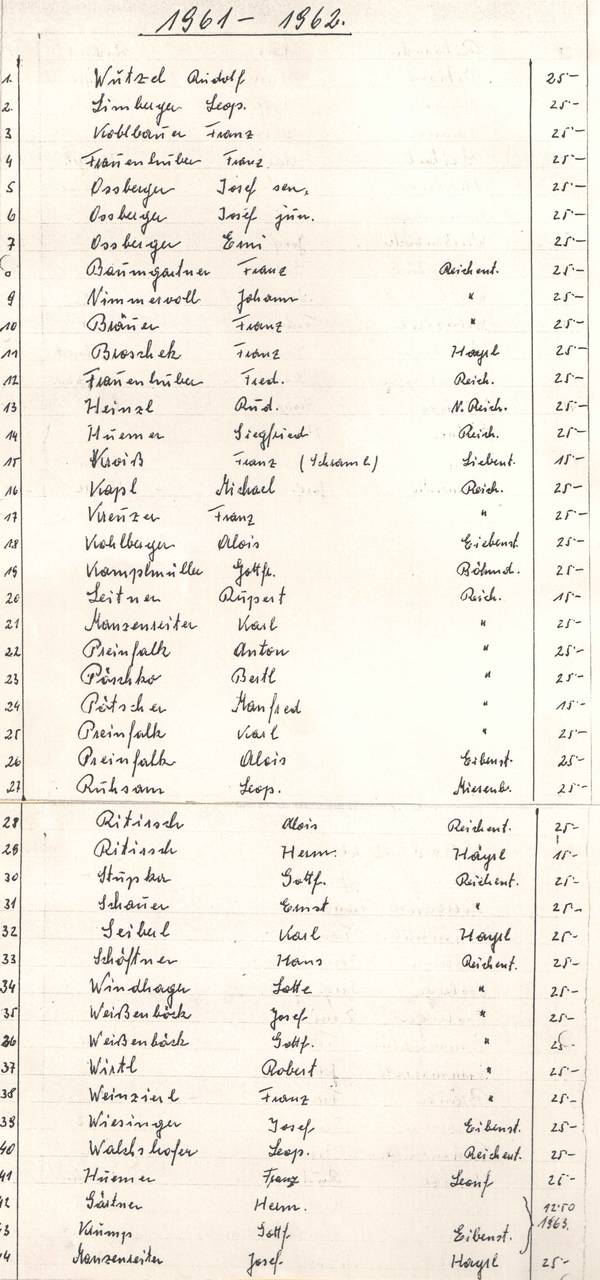 1961 - 1962.
1. Wutzel Rudolf 25.-
2. Limberger Leop. 25.-
3 Kohlbauer Franz 25.-
4 Frauenhuber Franz 25.-
5 Ossberger Josef sen. 25.-
6 Ossberger Josef jun. 25.-
7 Ossberger Emi 25.-
8 Baumgartner Franz Reichent. 25.-
9 Nimmervoll Johann " 25.-
10 Bräuer Franz " 25.-
11 Broschek Franz Hayrl 25.-
12 Frauenhuber Fred. Reich. 25.-
13 Heinzl Rud. N. Reich. 25.-
14 Huemer Siegfried Reich. 25.-
15 Kroiß Franz (Schraml) Liebent. 15.-
16 Kapl Michael Reich. 25.-
17 Kreuzer Franz " 25.-
18 Kohlberger Alois Eiebenst. 25.-
19 Kamplmüller Gottfr. Böhmd. 25.-
20 Leitner Rupert Reich. 15.-
21 Manzenreiter Karl " 25.-
22 Preinfalk Anton " 25.-
23 Pöschko Bertl " 25.-
24 Pötscher Manfred " 15.-
25 Preinfalk Karl " 25.-
26 Preinfalk Alois Eibenst. 25.-
27 Ruhsam Leop. Miesenb. 25.-
28 Ritirsch Alois Reichent. 25.-
29 Ritirsch Herm. Hayrl 15.-
30 Stupka Gottf. Reichent. 25.-
31 Schauer Ernst " 25.-
32 Seiberl Karl Hayrl 25.-
33 Schöftner Hans Reichent. 25.-
34 Windhager Lotte " 25.-
35 Weißenböck Josef " 25.-
36 Weißenböck Gottf. " 25.-
37 Wirtl Robert " 25.-
38 Weinzierl Franz " 25.-
39 Wiesinger Josef Eibenst. 25.-
40 Walchshofer Leop. Reichent. 25.-
41 Huemer Franz Leonf 25.-
42 Gärtner Herm. 12.50
43 Krump Gottf. Eibenst. 1963.
44 Manzenreiter Josef Hayrl 25.-